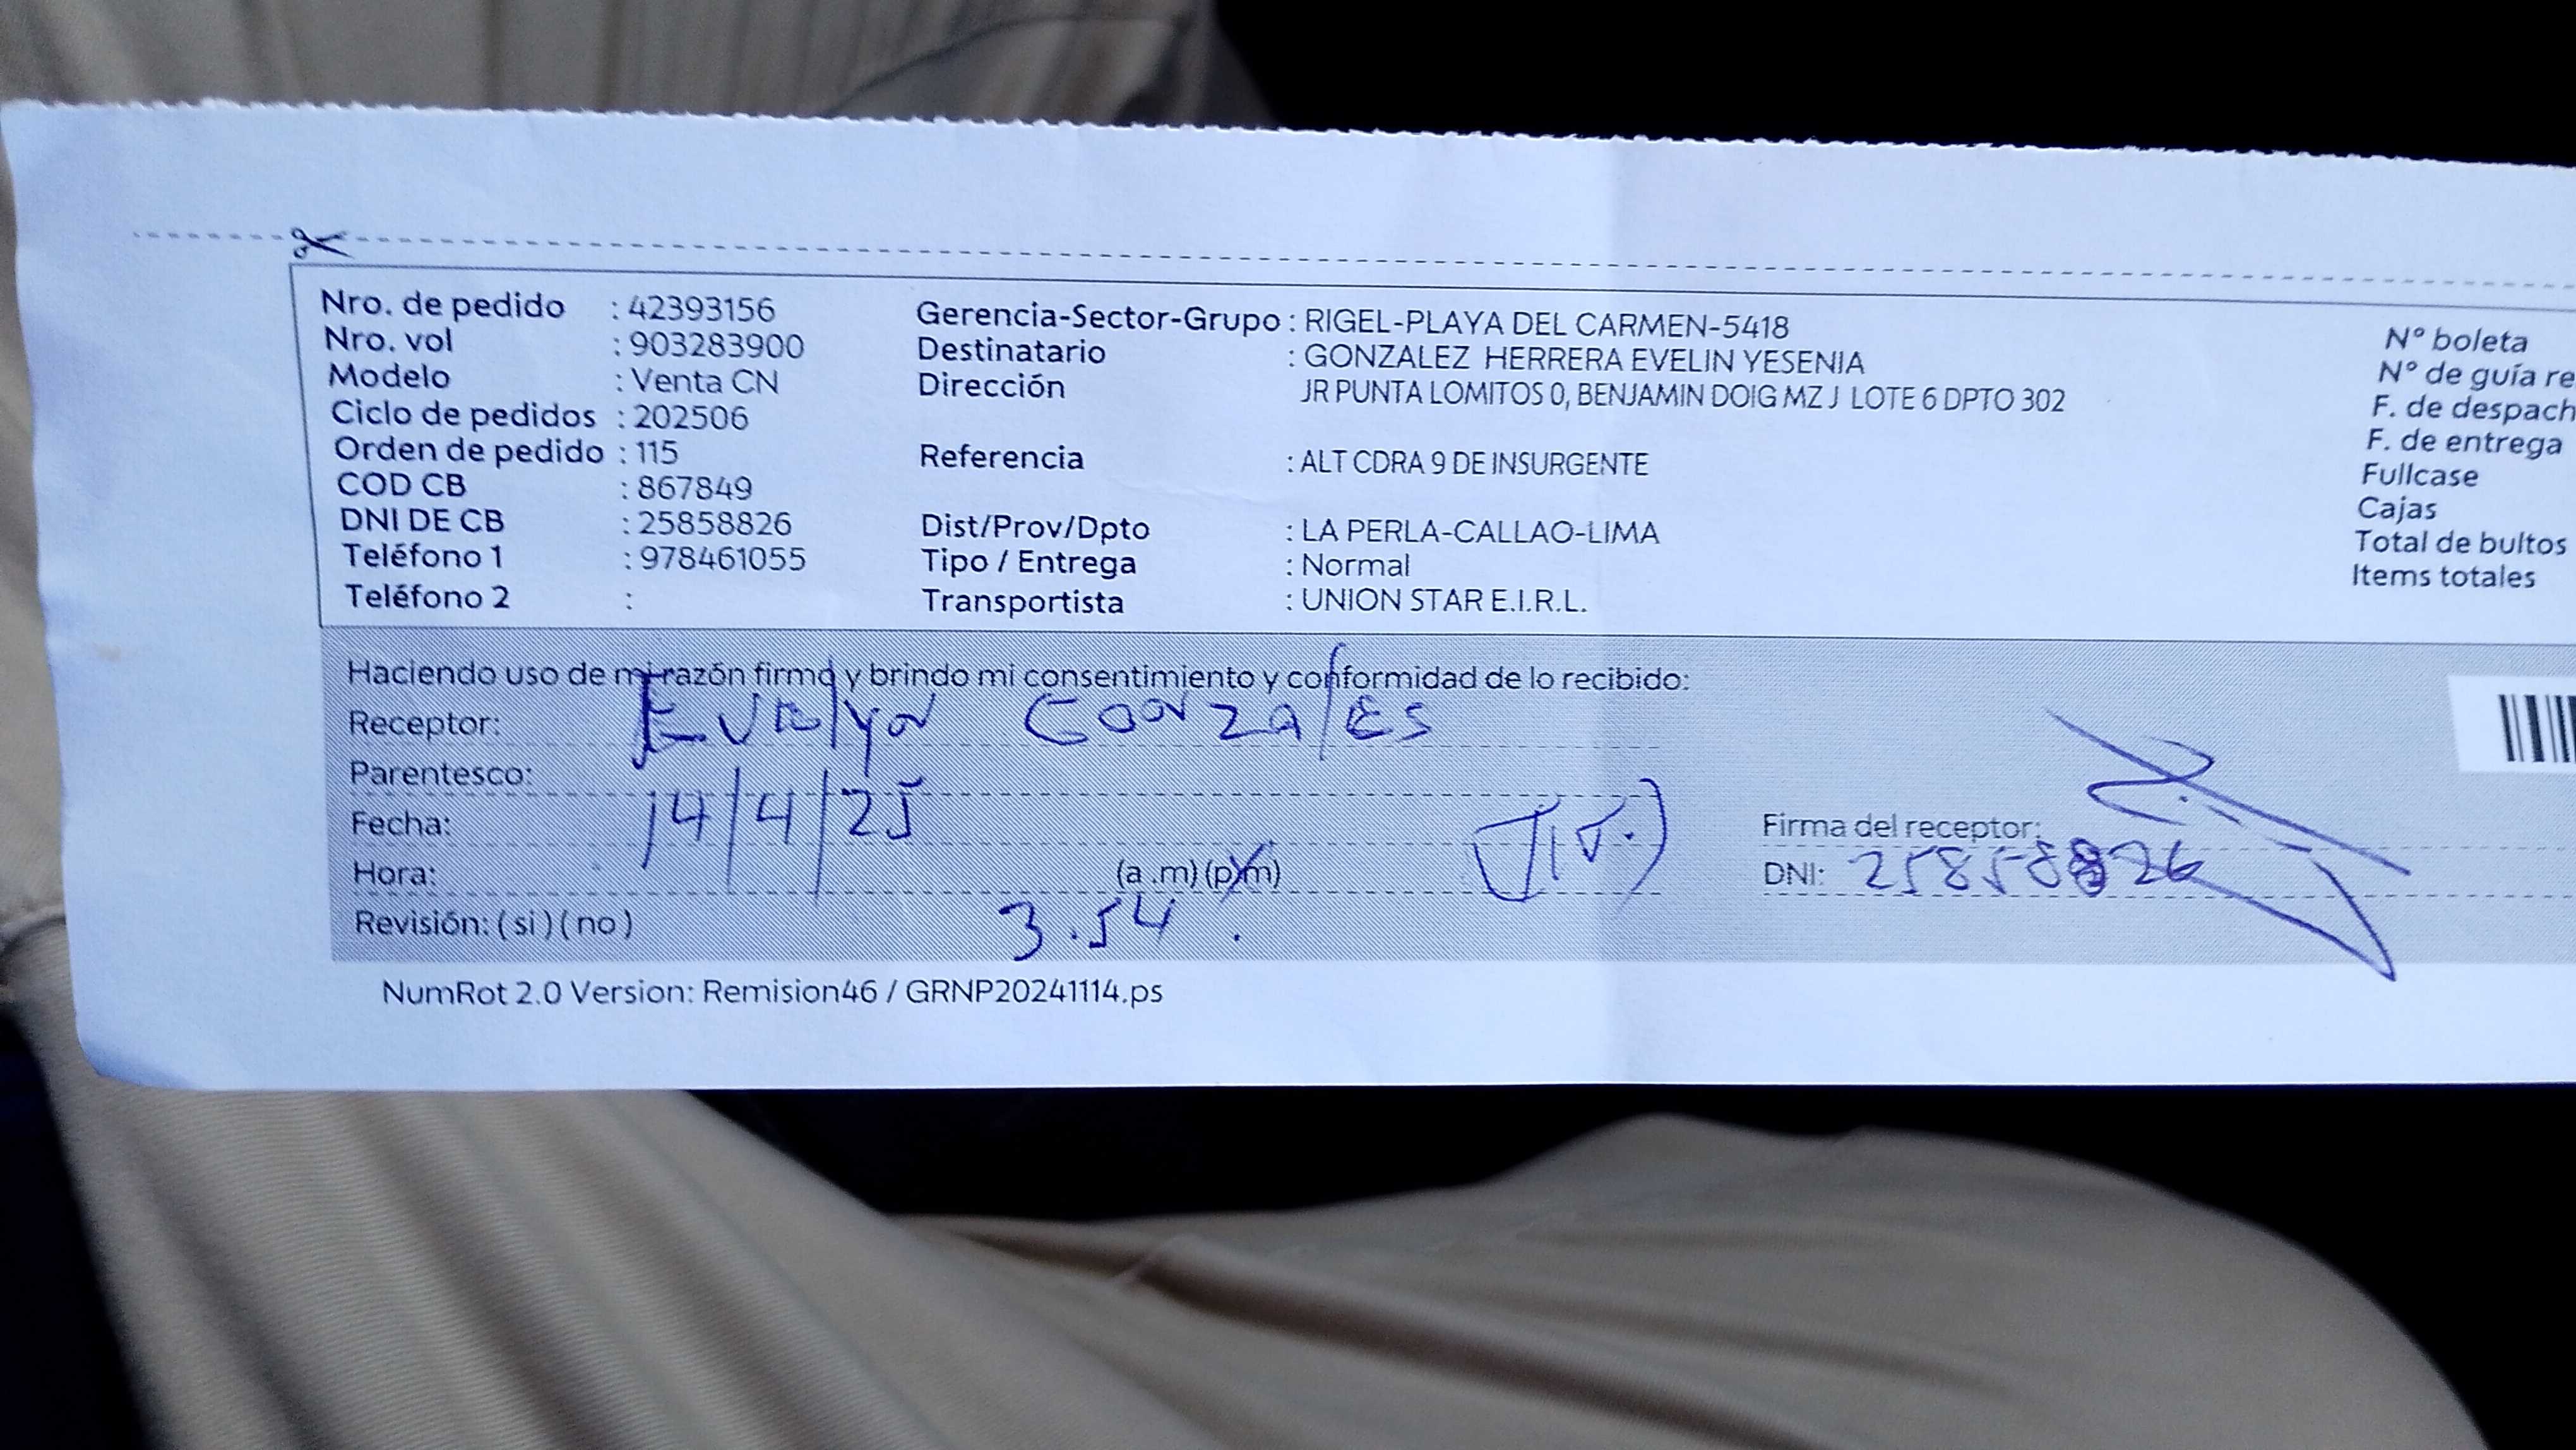 Nro. de pedido : 42393156
Nro. vol : 903283900
Modelo : Venta CN
Ciclo de pedidos : 202506
Orden de pedido : 115
COD CB : 867849
DNI DE CB : 25858826
Teléfono 1 : 978461055
Teléfono 2 :
Gerencia-Sector-Grupo : RIGEL-PLAYA DEL CARMEN-5418
Destinatario : GONZALEZ HERRERA EVELIN YESENIA
Dirección JR PUNTA LOMITOS 0, BENJAMIN DOIG MZ J LOTE 6 DPTO 302
Referencia : ALT CDRA 9 DE INSURGENTE
Dist/Prov/Dpto : LA PERLA-CALLAO-LIMA
Tipo / Entrega : Normal
Transportista : UNION STAR E.I.R.L.
N° boleta
N° de guía re
F. de despach
F. de entrega
Fullcase
Cajas
Total de bultos
Items totales
Haciendo uso de mi razón firmo y brindo mi consentimiento y conformidad de lo recibido:
Receptor: Evelyn Gonzales
Parentesco:
Fecha: 14/4/25
Hora: (a.m) (p.m)
3.54
Revisión: (si) (no)
Firma del receptor:
DNI: 25858826
NumRot 2.0 Version: Remision46 / GRNP20241114.ps